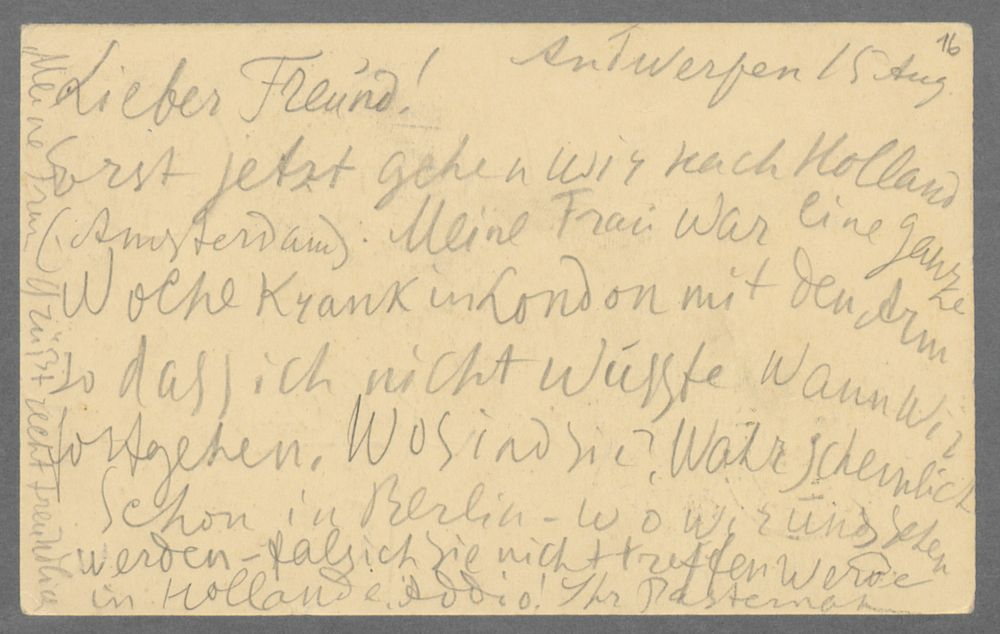 16
Antwerpen 15 Aug.
Lieber Freund!
Erst jetzt gehen wir nach Holland
(Amsterdam). Meine Frau war eine ganze
Woche Krank in London mit den Arm
so dass ich nicht wüsste wann wir
fortgehen. Wo sind Sie? Wahrscheinlich
schon in Berlin – wo wir uns sehen
werden – falls ich Sie nicht treffen werde
in Hollande. Addio! Ihr Pasternak
Meine Frau grüßt recht freundlich